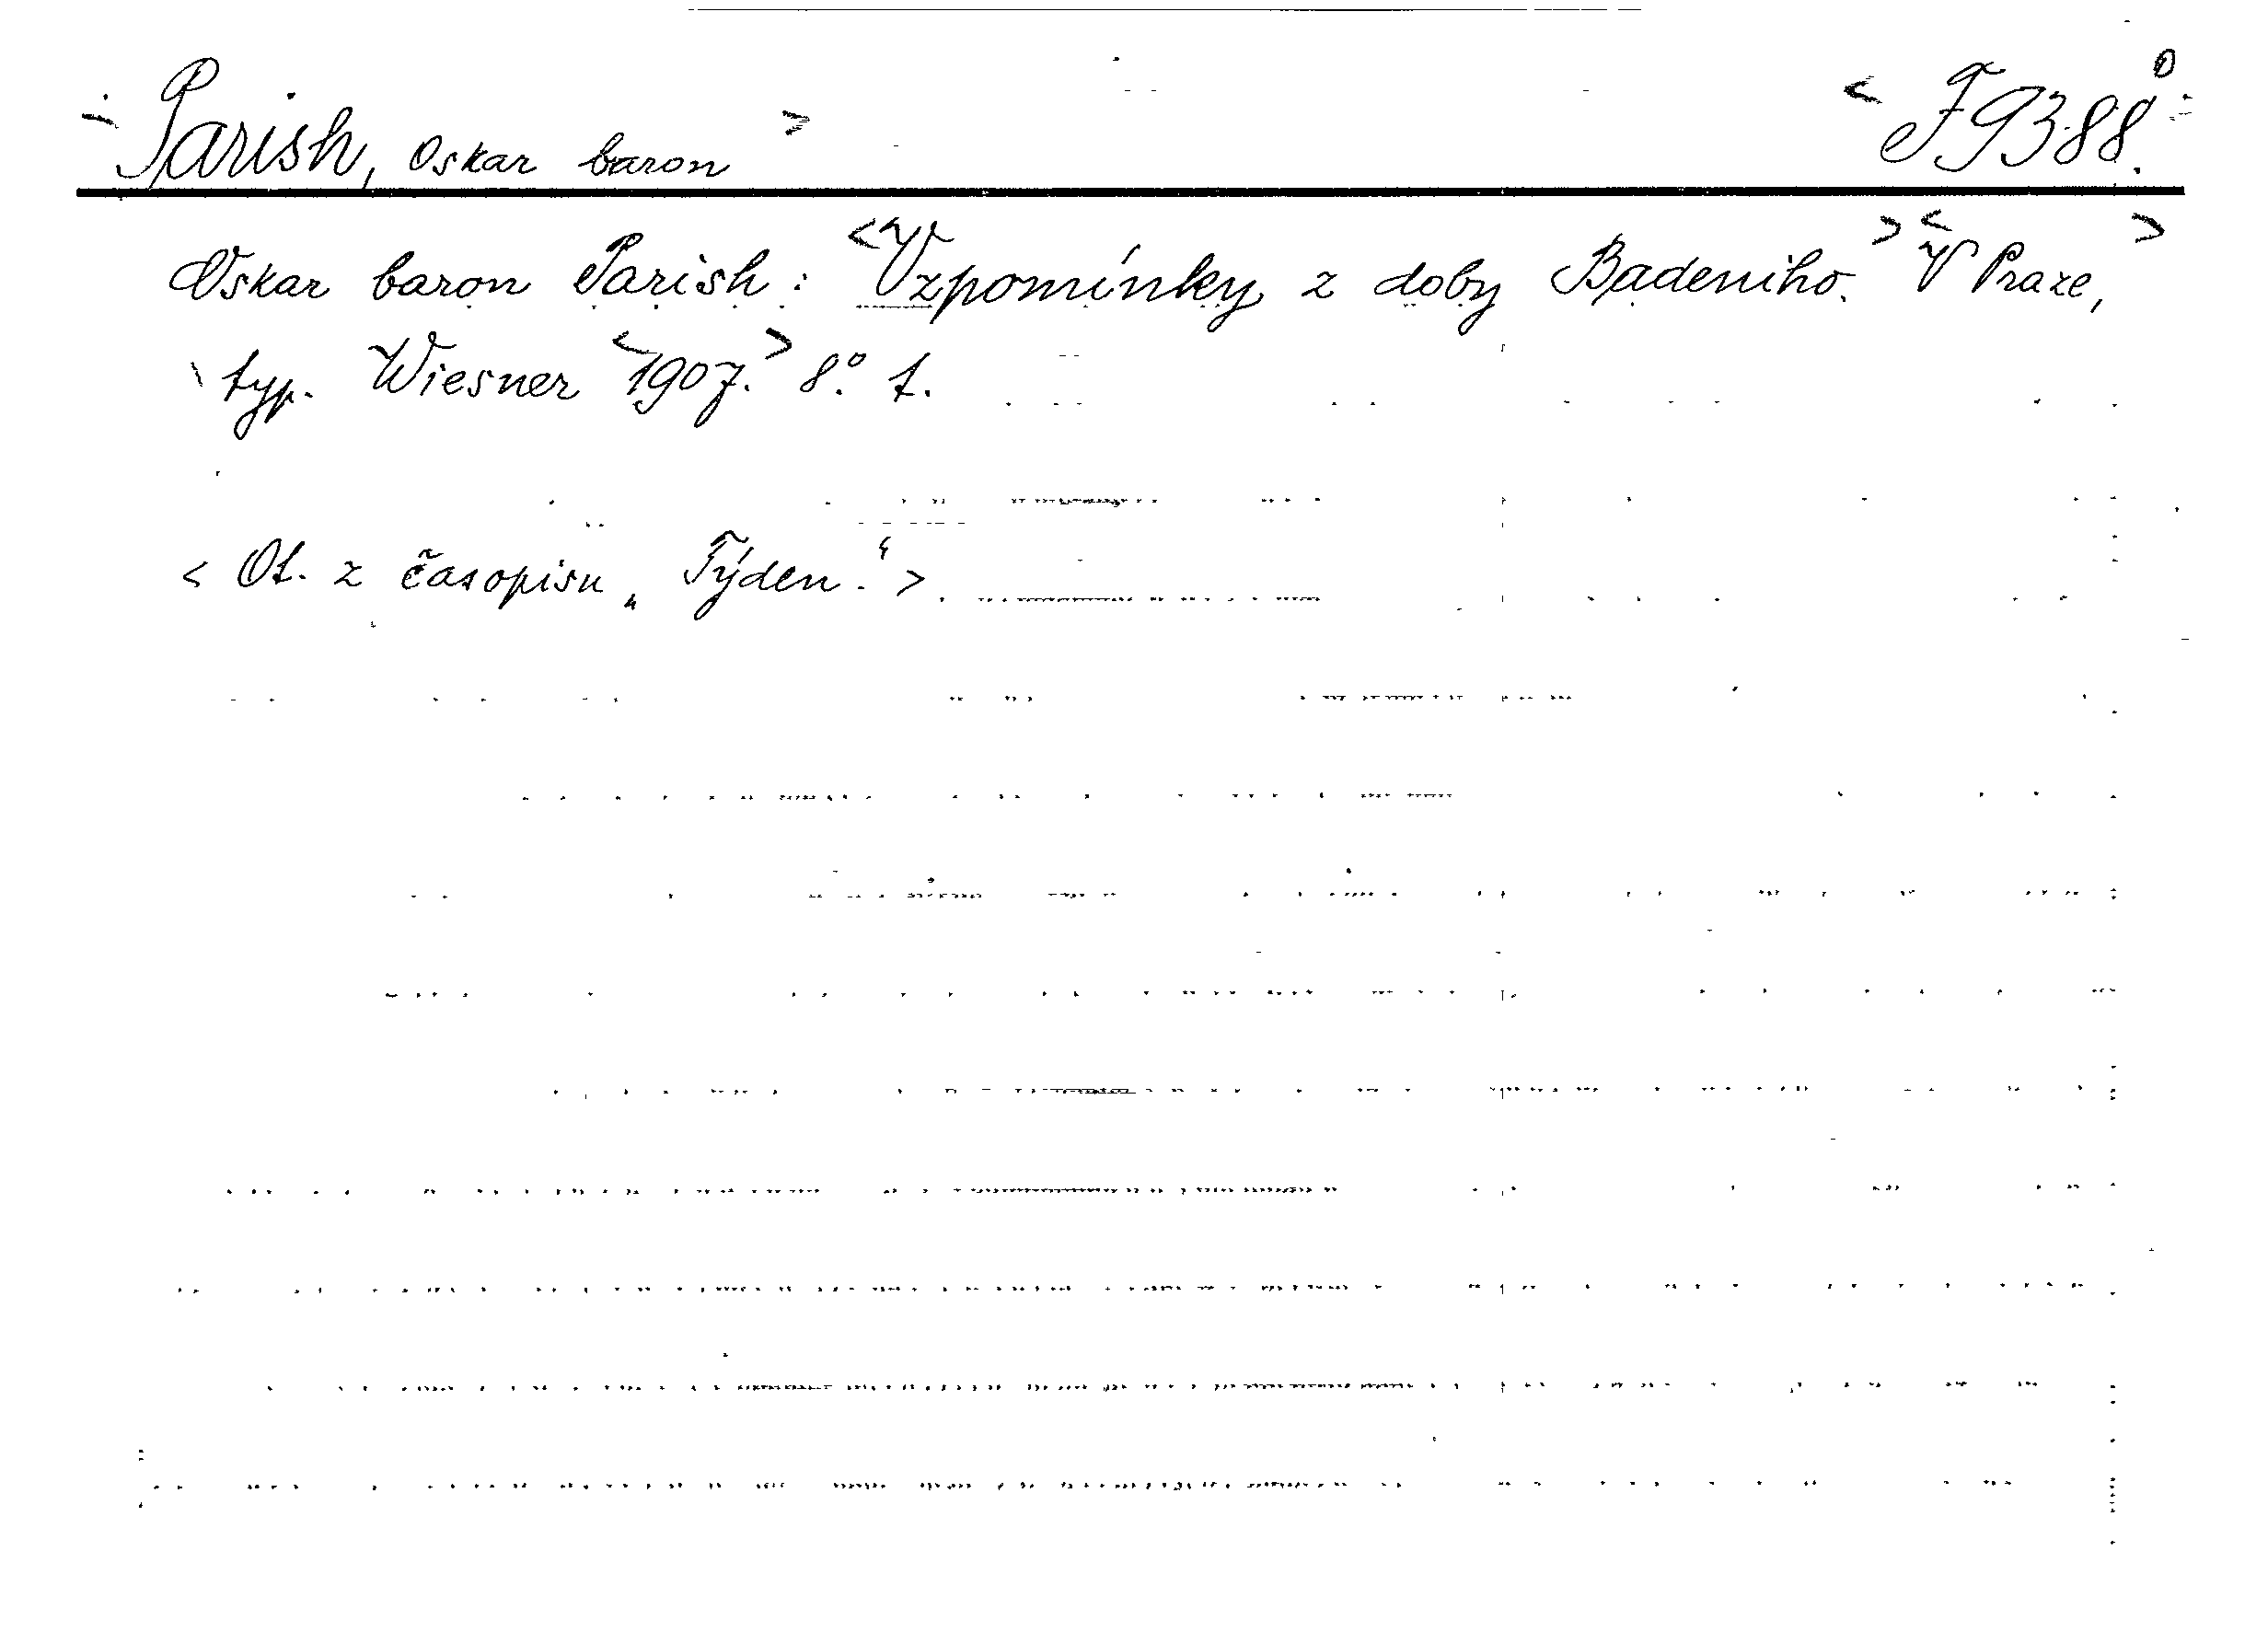 < Parish, Oskar baron > < F 9388.0
Oskar baron Parish: <Vzpomínky z doby Badeniho.> <V Praze,>
typ. Wiesner <1907.> 8.° t.
< Ot. z časopisu „Týden.“ >